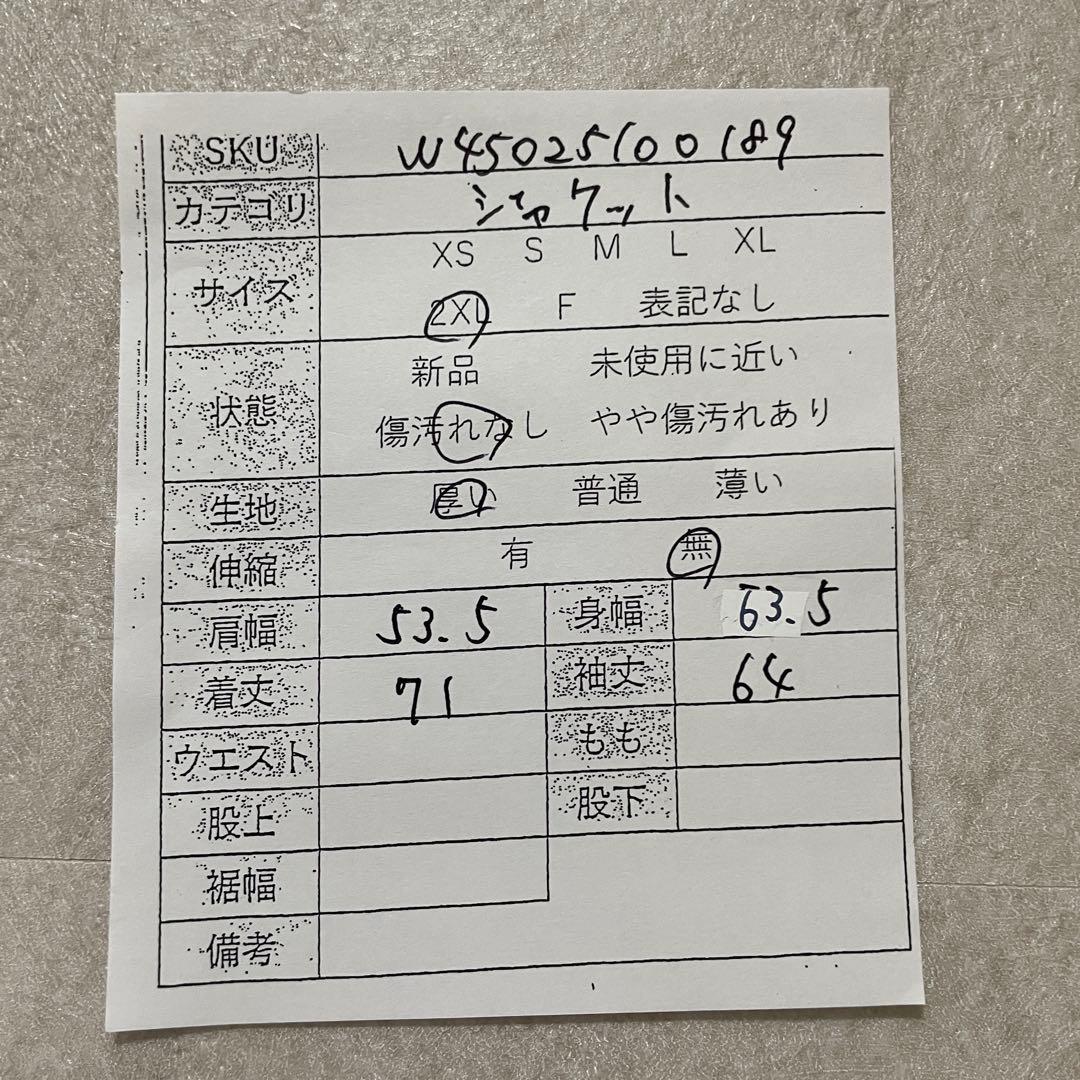 SKU W45025100189
カテゴリ ジャケット
サイズ XS S M L XL
2XL F 表記なし
状態 新品 未使用に近い
傷汚れなし やや傷汚れあり
生地 厚い 普通 薄い
伸縮 有 無
肩幅 53.5 身幅 63.5
着丈 71 袖丈 64
ウエスト もも
股上 股下
裾幅
備考